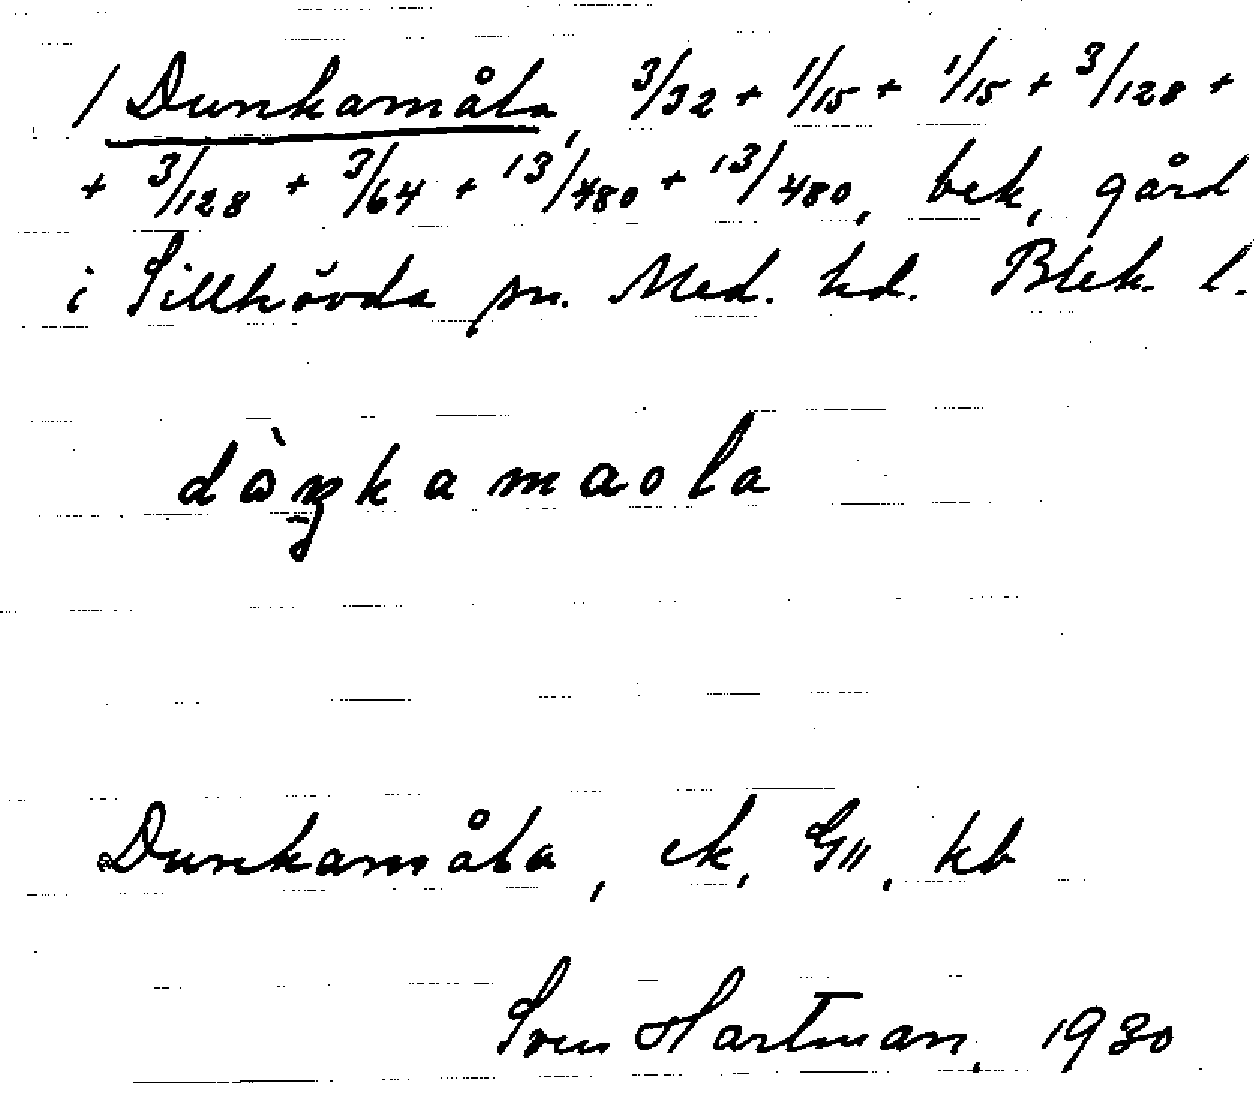 / Dunkamåla, 3/32 + 1/15 + 1/15 + 3/128 +
+ 3/128 + 3/64 + 13/480 + 13/480, bek, gård
i Sillhövda sn. Med. hd. Blek. l.
dὼŋkamaola
Dunkamåla, ek, GII, kb
Sven Hartman, 1930